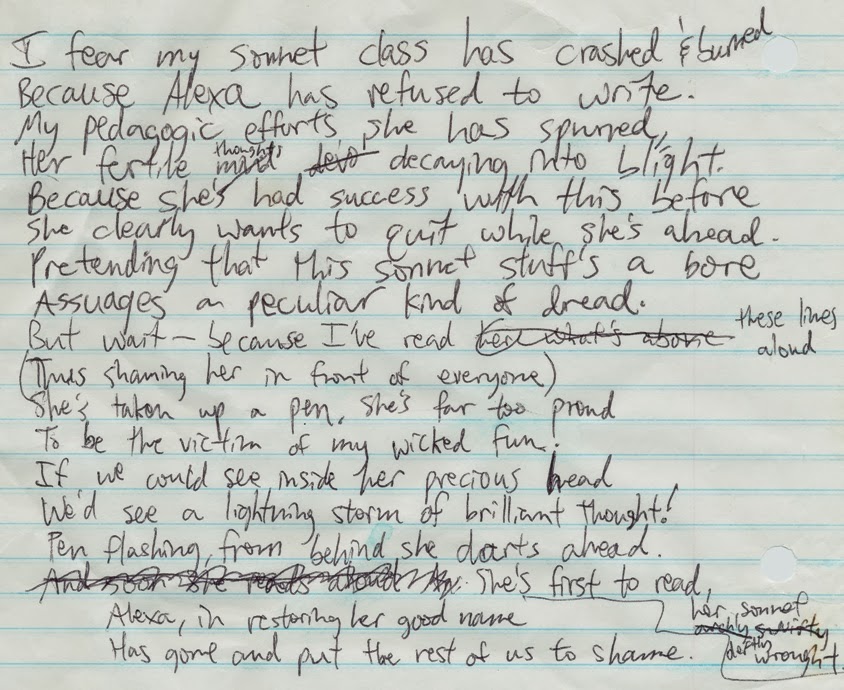 I fear my sonnet class has crashed & burned
Because Alexa has refused to write.
My pedagogic efforts she has spurned,
Her fertile thoughts decaying into blight.
Because she's had success with this before
She clearly wants to quit while she's ahead.
Pretending that this sonnet stuff's a bore
Assuages a peculiar kind of dread.
But wait – because I've read these lines aloud
(Thus shaming her in front of everyone)
She's taken up a pen, she's far too proud
To be the victim of my wicked fun!
If we could see inside her precious head
We'd see a lightning storm of brilliant thought!
Pen flashing, from behind she darts ahead.
And soon she reads aloud She's first to read, her sonnet deftly wrought.
Alexa, in restoring her good name
Has gone and put the rest of us to shame.